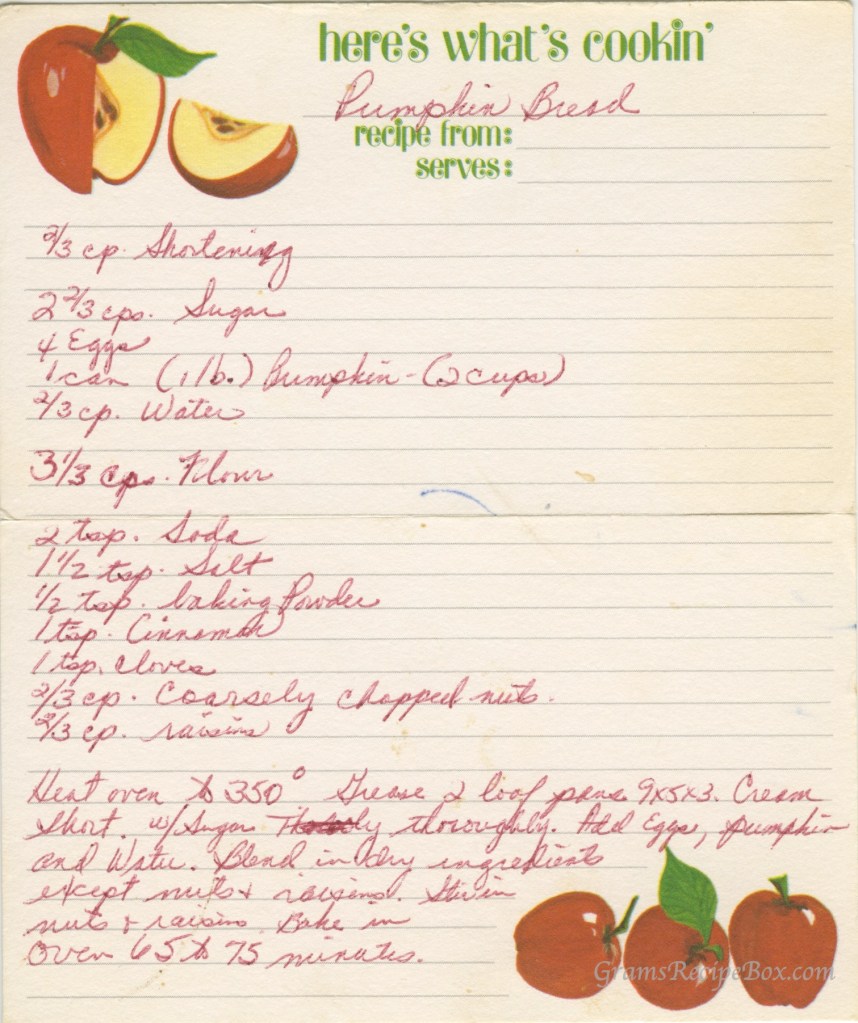 here's what's cookin'
Pumpkin Bread
recipe from:
serves:
2/3 cp. Shortening
2 2/3 cps. Sugar
4 Eggs
1 can (1 lb.) Pumpkin - (2 cups)
2/3 cp. Water
3 1/3 cps. Flour
2 tsp. Soda
1 1/2 tsp. Salt
1/2 tsp. baking Powder
1 tsp. Cinnamon
1 tsp. Cloves
2/3 cp. Coarsely chopped nuts.
2/3 cp. raisins
Heat oven to 350° Grease 2 loaf pans 9x5x3. Cream
Short. w/ Sugar thoroughly. Add Eggs, pumpkin
and Water. Blend in dry ingredients
except nuts & raisins. Stir in
nuts & raisins. Bake in
Oven 65 to 75 minutes.
GramsRecipeBox.com